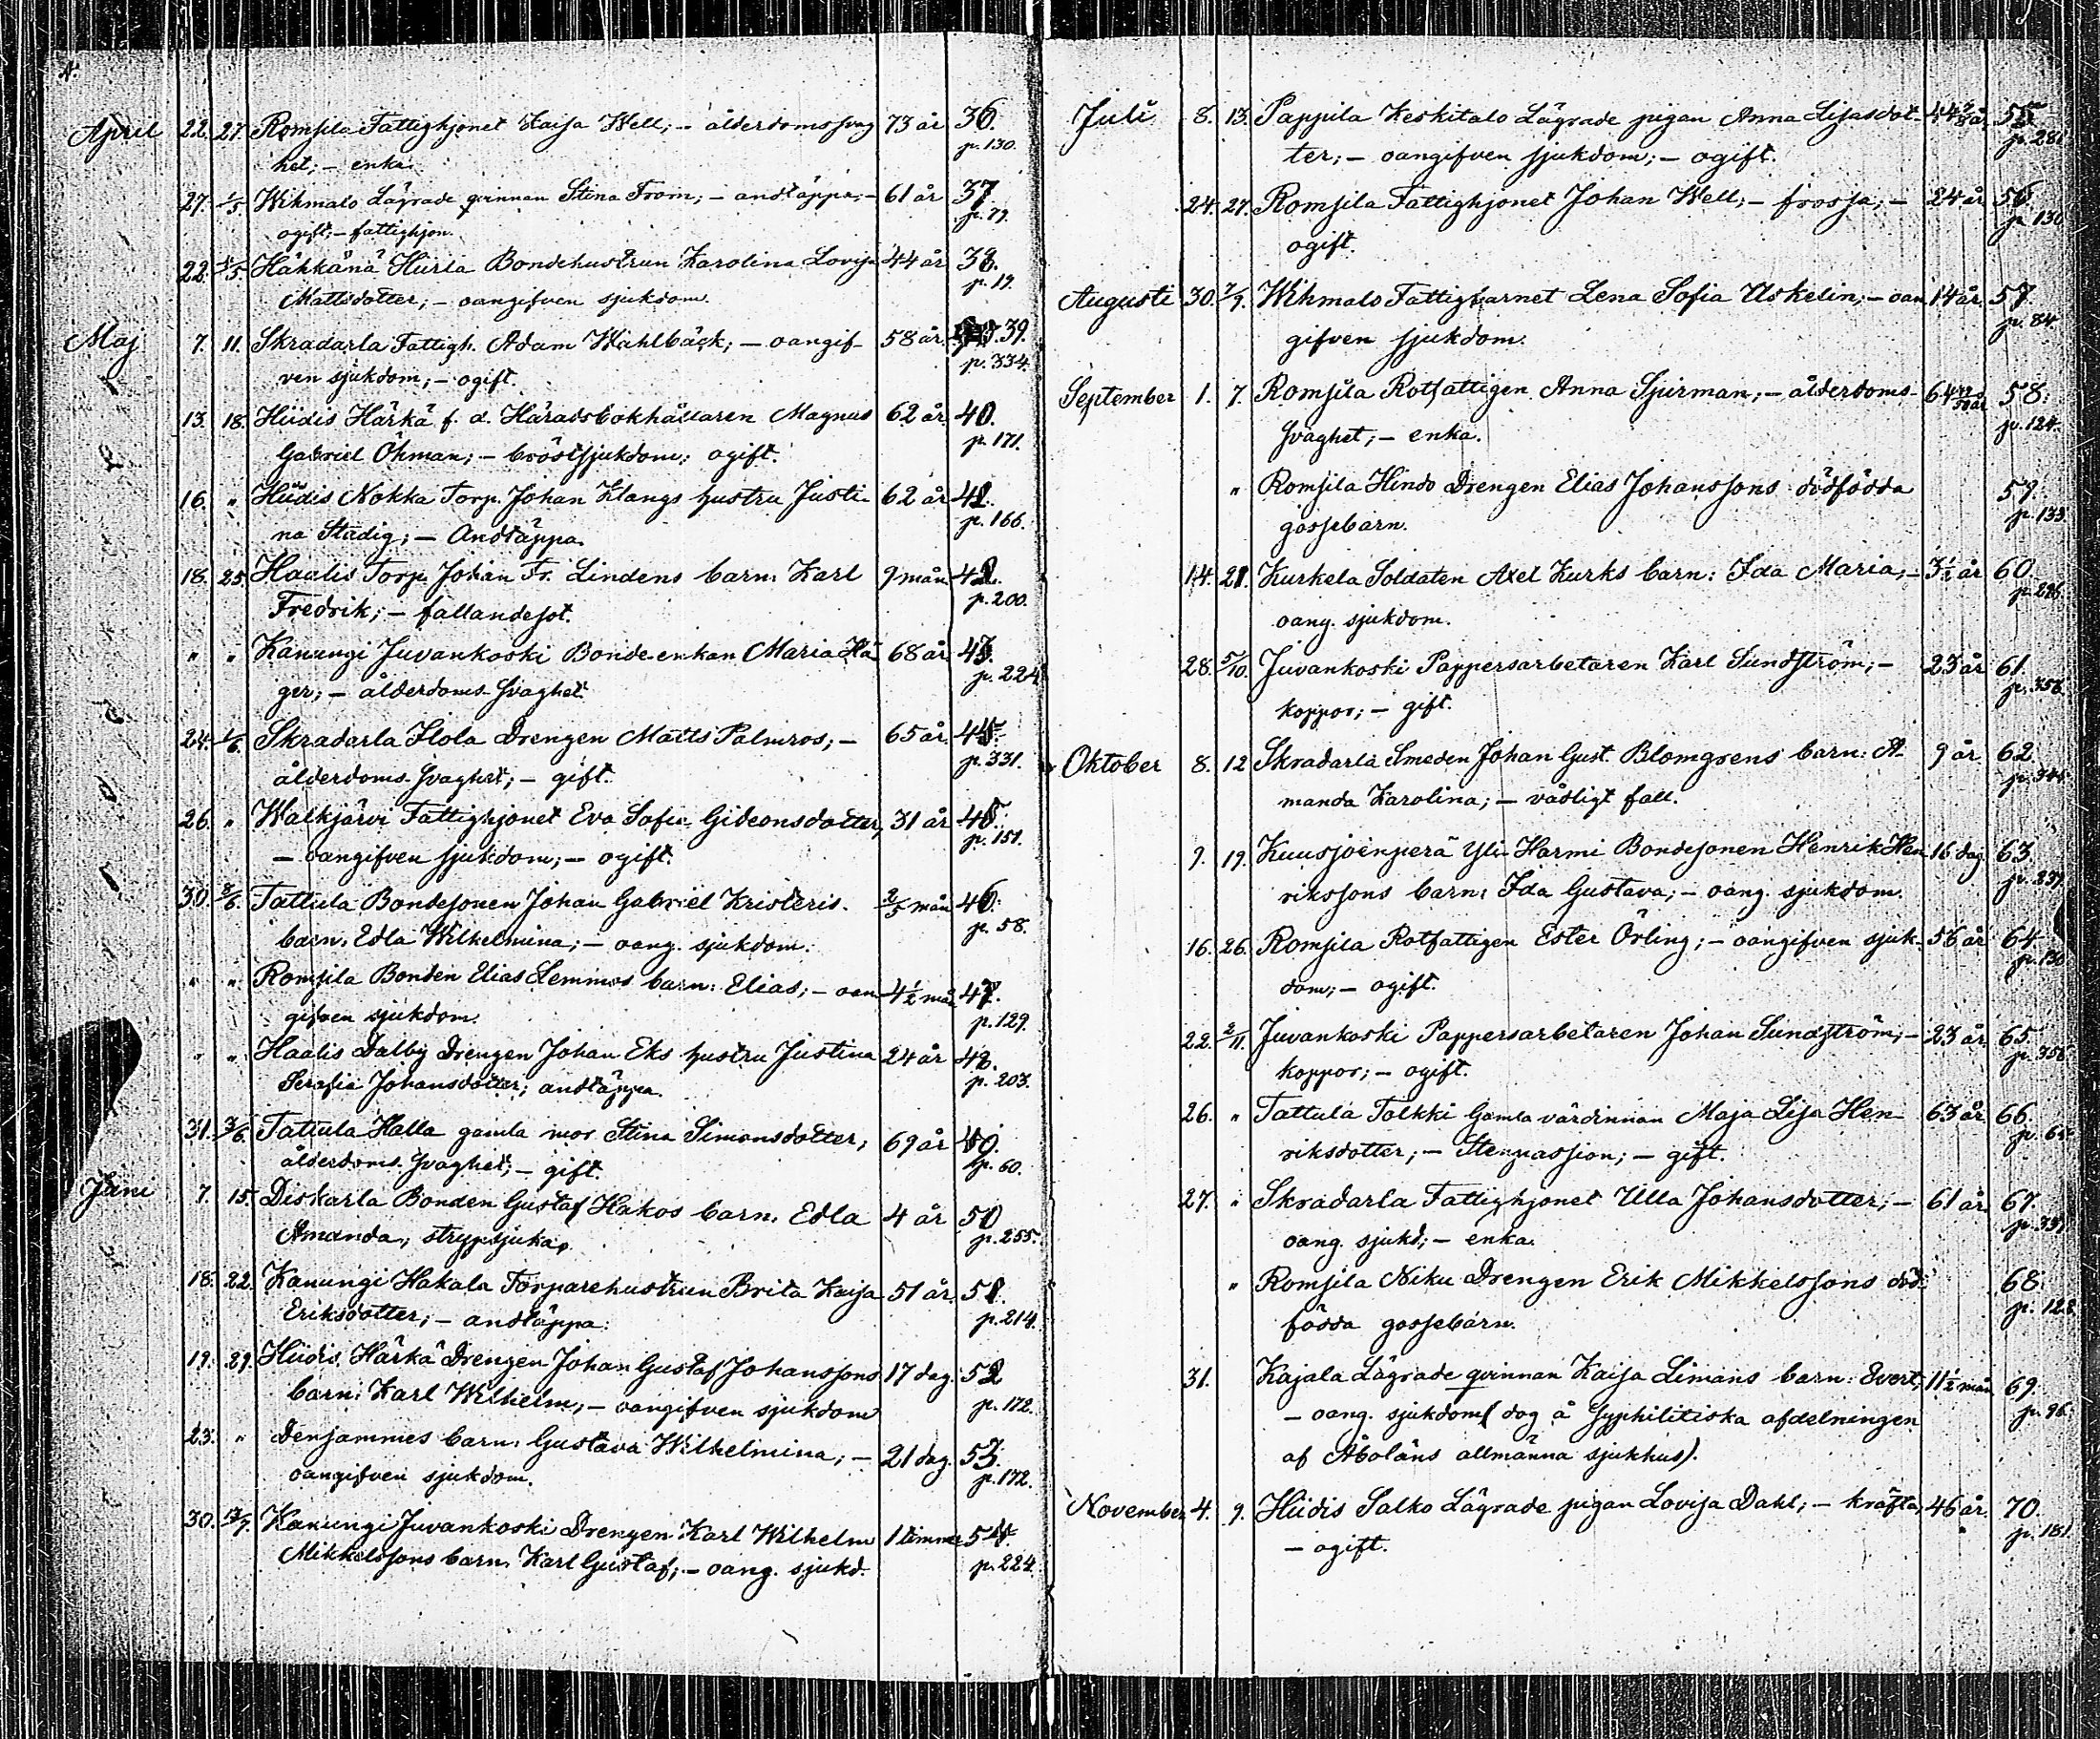 April 22. 27. Romsila Fattighjonet Kaisa Well; – ålderdomssvag 73 år 36.
het; – enka. p. 130.
27. 1/5. Wihmalo Lägrade qvinnan Stina From; – andtäppa; – 61 år 37.
ogift; – fattighjon. p. 79.
22. /5. Hähkänä Hurla Bondehustrun Karolina Lovisa 44 år 38.
Mattsdotter; – oangifven sjukdom. p. 19.
Maj 7. 11. Skradarla Fattigh. Adam Wahlbäck; – oangif- 58 år 39.
ven sjukdom; – ogift. p. 334.
13. 18. Hiidis Härkä f. d. Häradsbokhållaren Magnus 62 år 40.
Gabriel Öhman; – bröstsjukdom; ogift. p. 171.
16. " Hiidis Nokka Torp. Johan Klangs hustru Justi- 62 år 41.
na Städig; – Andtäppa. p. 166.
18. 25. Haalis Torp. Johan Fr. Lindens barn: Karl 9 mån 42.
Fredrik; – fallandesot. p. 200.
" " Kanungi Juvankoski Bonde-enkan Maria Hä- 68 år 43.
ger; – ålderdoms-svaghet. p. 224
24. 1/6. Skradarla Ilola Drengen Matts Palmros; – 65 år 44.
ålderdoms-svaghet; – gift. p. 331.
26. " Walkjärvi Fattighjonet Eva Sofia Gideonsdotter, 31 år 45.
– oangifven sjukdom; – ogift. p. 151.
30. 8/6. Tattula Bondesonen Johan Gabriel Kristeris. 2/5 mån 46.
barn: Edla Wilhelmina; – oang. sjukdom. p. 58.
" " Romsila Bonden Elias Lemmos barn: Elias; – oan- 4 1/2 mån 47.
gifven sjukdom. p. 129.
" " Haalis Dalby Drengen Johan Eks hustru Justina 24 år 48.
Serafia Johansdotter; andtäppa. p. 203.
31. 3/6. Tattula Halla gamla mor Stina Simonsdotter; 69 år 49.
ålderdoms-svaghet; – gift. p. 60.
Juni 7. 15. Diskarla Bonden Gustaf Hakos barn: Edla 4 år 50
Amanda; strypsjuka. p. 255.
18. 22. Kanungi Hakala Torparehustrun Brita Kaisa 51 år. 51.
Eriksdotter; – andtäppa. p. 214.
19. 29. Hiidis Härkä Drengen Johan Gustaf Johanssons 17 dag. 52
barn: Karl Wilhelm; – oangifven sjukdom p. 172.
23. " Densammes barn: Gustava Wilhelmina; – 21 dag. 53.
oangifven sjukdom. p. 172.
30. /7. Kanungi Juvankoski Drengen Karl Wilhelm 1 timme 54.
Mikkelssons barn: Karl Gustaf; – oang. sjukd. p. 224.
Juli 8. 13. Pappila Keskitalo Lägrade pigan Anna Lisasdot- 55
ter; – oangifven sjukdom; – ogift. p. 281
24. 27. Romsila Fattighjonet Johan Well; – frossa; – 24 år 56
ogift. p. 130
Augusti 30. 7/9. Wihmalo Fattigbarnet Lena Sofia Uskelin; – oan 14 år 57.
gifven sjukdom. p. 84
September 1. 7. Romsila Rotfattigen Anna Sjurman; – ålderdoms- 58.
svaghet; – enka. p. 124.
" Romsila Hindo Drengen Elias Johanssons dödfödda 59.
gossebarn. p. 133
14. 21. Kurkela Soldaten Axel Kurks barn: Ida Maria; – 3 1/2 år 60.
oang. sjukdom. p. 296
28. 5/10. Juvankoski Pappersarbetaren Karl Sundström; – 23 år 61
koppor; – gift. p. 358
Oktober 8. 12 Skradarla Smeden Johan Gust. Blomgrens barn: A- 9 år 62.
manda Karolina; – vådligt fall. p. 344
9. 19. Kuusjoenperä Yli Harmi Bondesonen Henrik Hen 16 dag 63.
rikssons barn: Ida Gustava; – oang. sjukdom. p. 237
16. 26. Romsila Rotfattigen Ester Örling; – oangifven sjuk- 56 år 64
dom; – ogift. p. 130
22. 2/11. Juvankoski Pappersarbetaren Johan Sundström; – 23 år 65.
koppor; – ogift. p. 358
26. " Tattula Tolkki Gamla värdinnan Maja Lisa Hen- 63 år 66.
riksdotter; – Stenpassion; – gift. p. 65
27. " Skradarla Fattighjonet Ulla Johansdotter; – 61 år 67.
oang. sjukd; – enka. p. 337
" Romsila Niku Drengen Erik Mikkelssons död- 68.
födda gossebarn. p. 128
31. Kajala Lägrade qvinnan Kaisa Limans barn: Evert; 11 1/2 mån 69.
– oang. sjukdom (dog å syphilitiska afdelningen p. 96
af Åbolans allmänna sjukhus).
November 4. 9. Hiidis Salko Lägrade pigan Lovisa Dahl; – kräfta; 46 år 70.
– ogift. p. 181